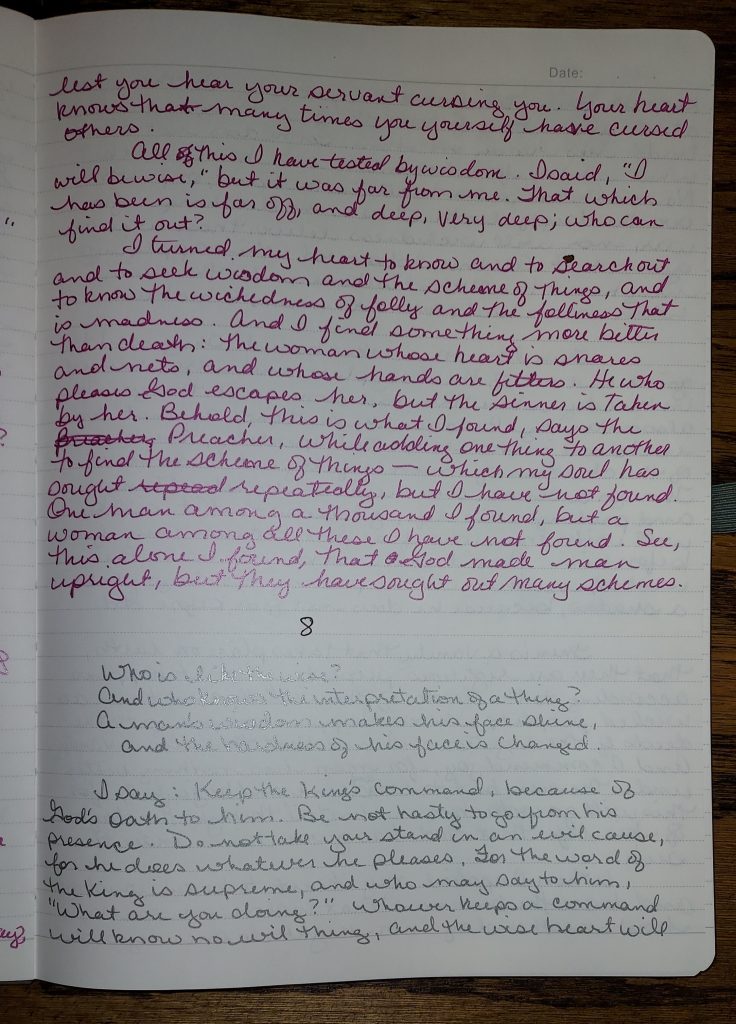 Date:
lest you hear your servant cursing you. Your heart
knows that many times you yourself have cursed
others.
All of this I have tested by wisdom. I said, "I
will be wise," but it was far from me. That which
has been is far off, and deep, very deep; who can
find it out?
I turned my heart to know and to search out
and to seek wisdom and the scheme of things, and
to know the wickedness of folly and the folliness that
is madness. And I find something more bitter
than death: the woman whose heart is snares
and nets, and whose hands are fetters. He who
pleases God escapes her, but the sinner is taken
by her. Behold, this is what I found, says the
Preacher, while adding one thing to another
to find the scheme of things — which my soul has
sought repeatedly, but I have not found.
One man among a thousand I found, but a
woman among all these I have not found. See,
this alone I found, that God made man
upright, but they have sought out many schemes.
8
Who is like the wise?
And who knows the interpretation of a thing?
A man's wisdom makes his face shine,
and the hardness of his face is changed.
I say: Keep the King's command, because of
God's oath to him. Be not hasty to go from his
presence. Do not take your stand in an evil cause,
for he does whatever he pleases. For the word of
the King is supreme, and who may say to him,
"What are you doing?" Whoever keeps a command
will know no evil thing, and the wise heart will